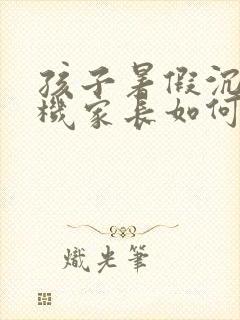 孩子暑假沉
機家長如何
熾光筆